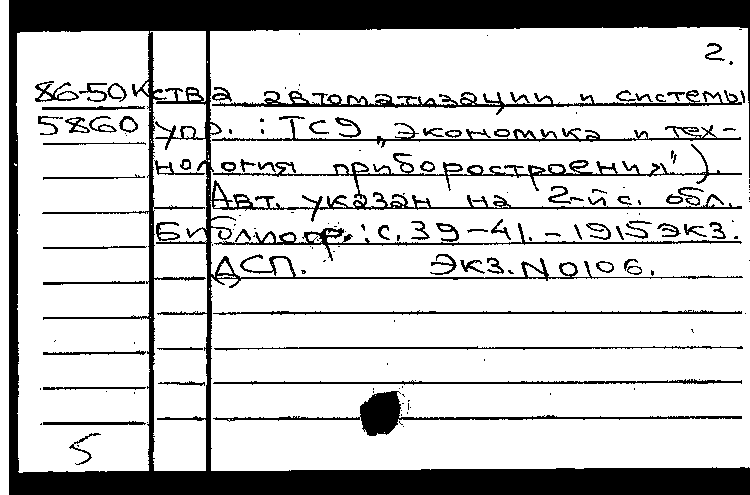 2.
86-50к ства автоматизации и системы
5860 упр. : ТС9 „Экономика и тех-
нология приборостроения").
Авт. указан на 2-й с. обл.
Библиогр.: с. 39-41. - 1915 экз.
ДСП. Экз. N 0106.
5